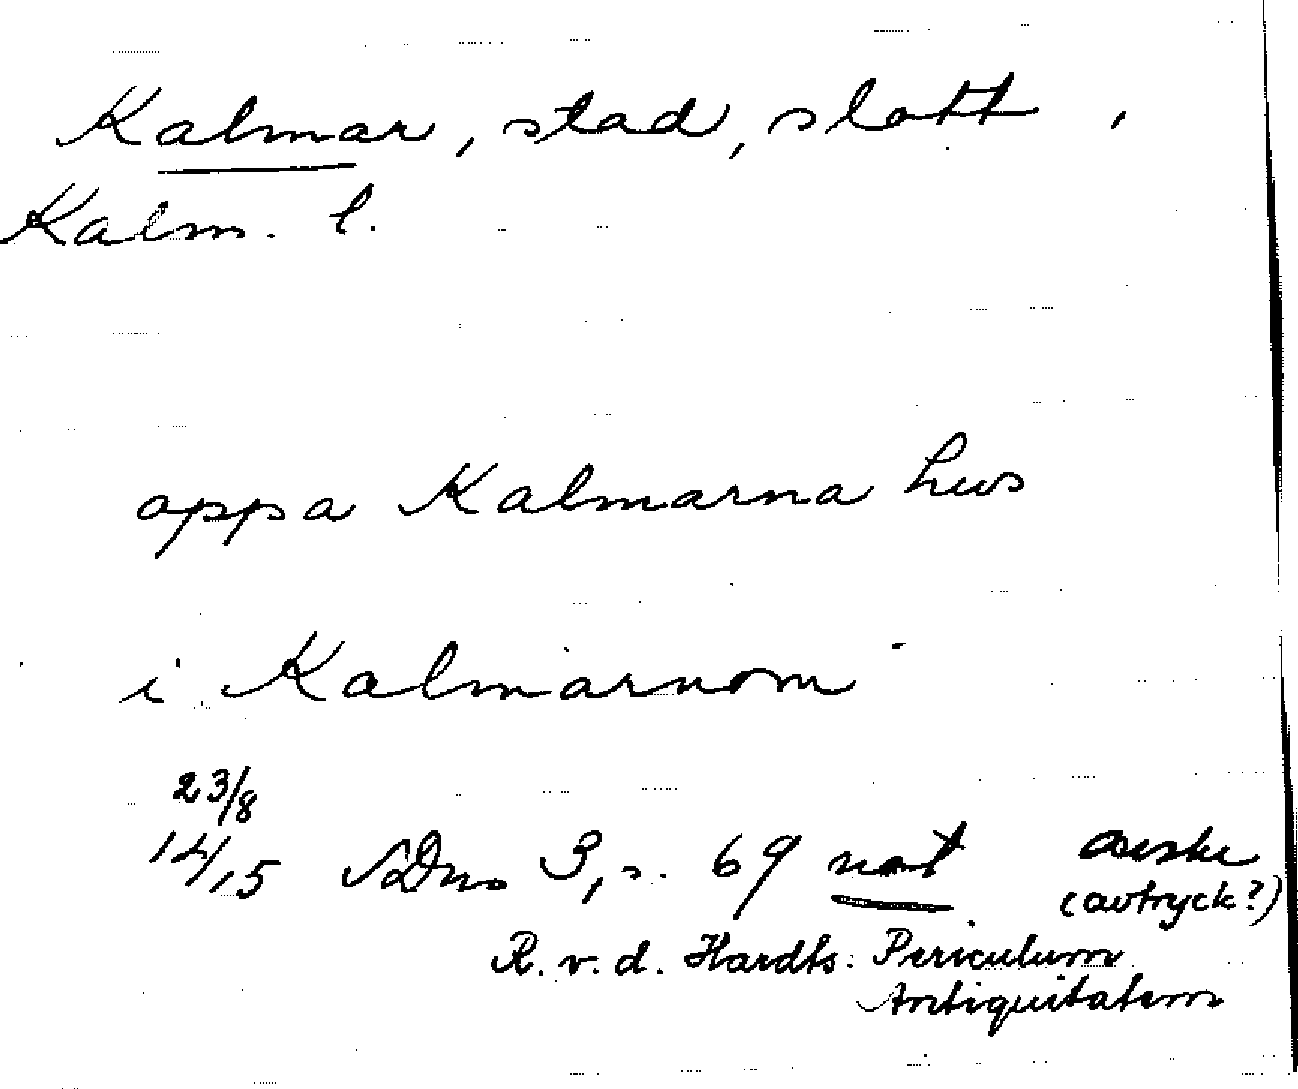 Kalmar, stad, slott,
Kalm. l.
oppa Kalmarna hus
i Kalmarnom
23/8
14/15 SDns 3, s. 69 not avskr
(avtryck?)
R. v. d. Hardts. Periculum
Antiquitatem